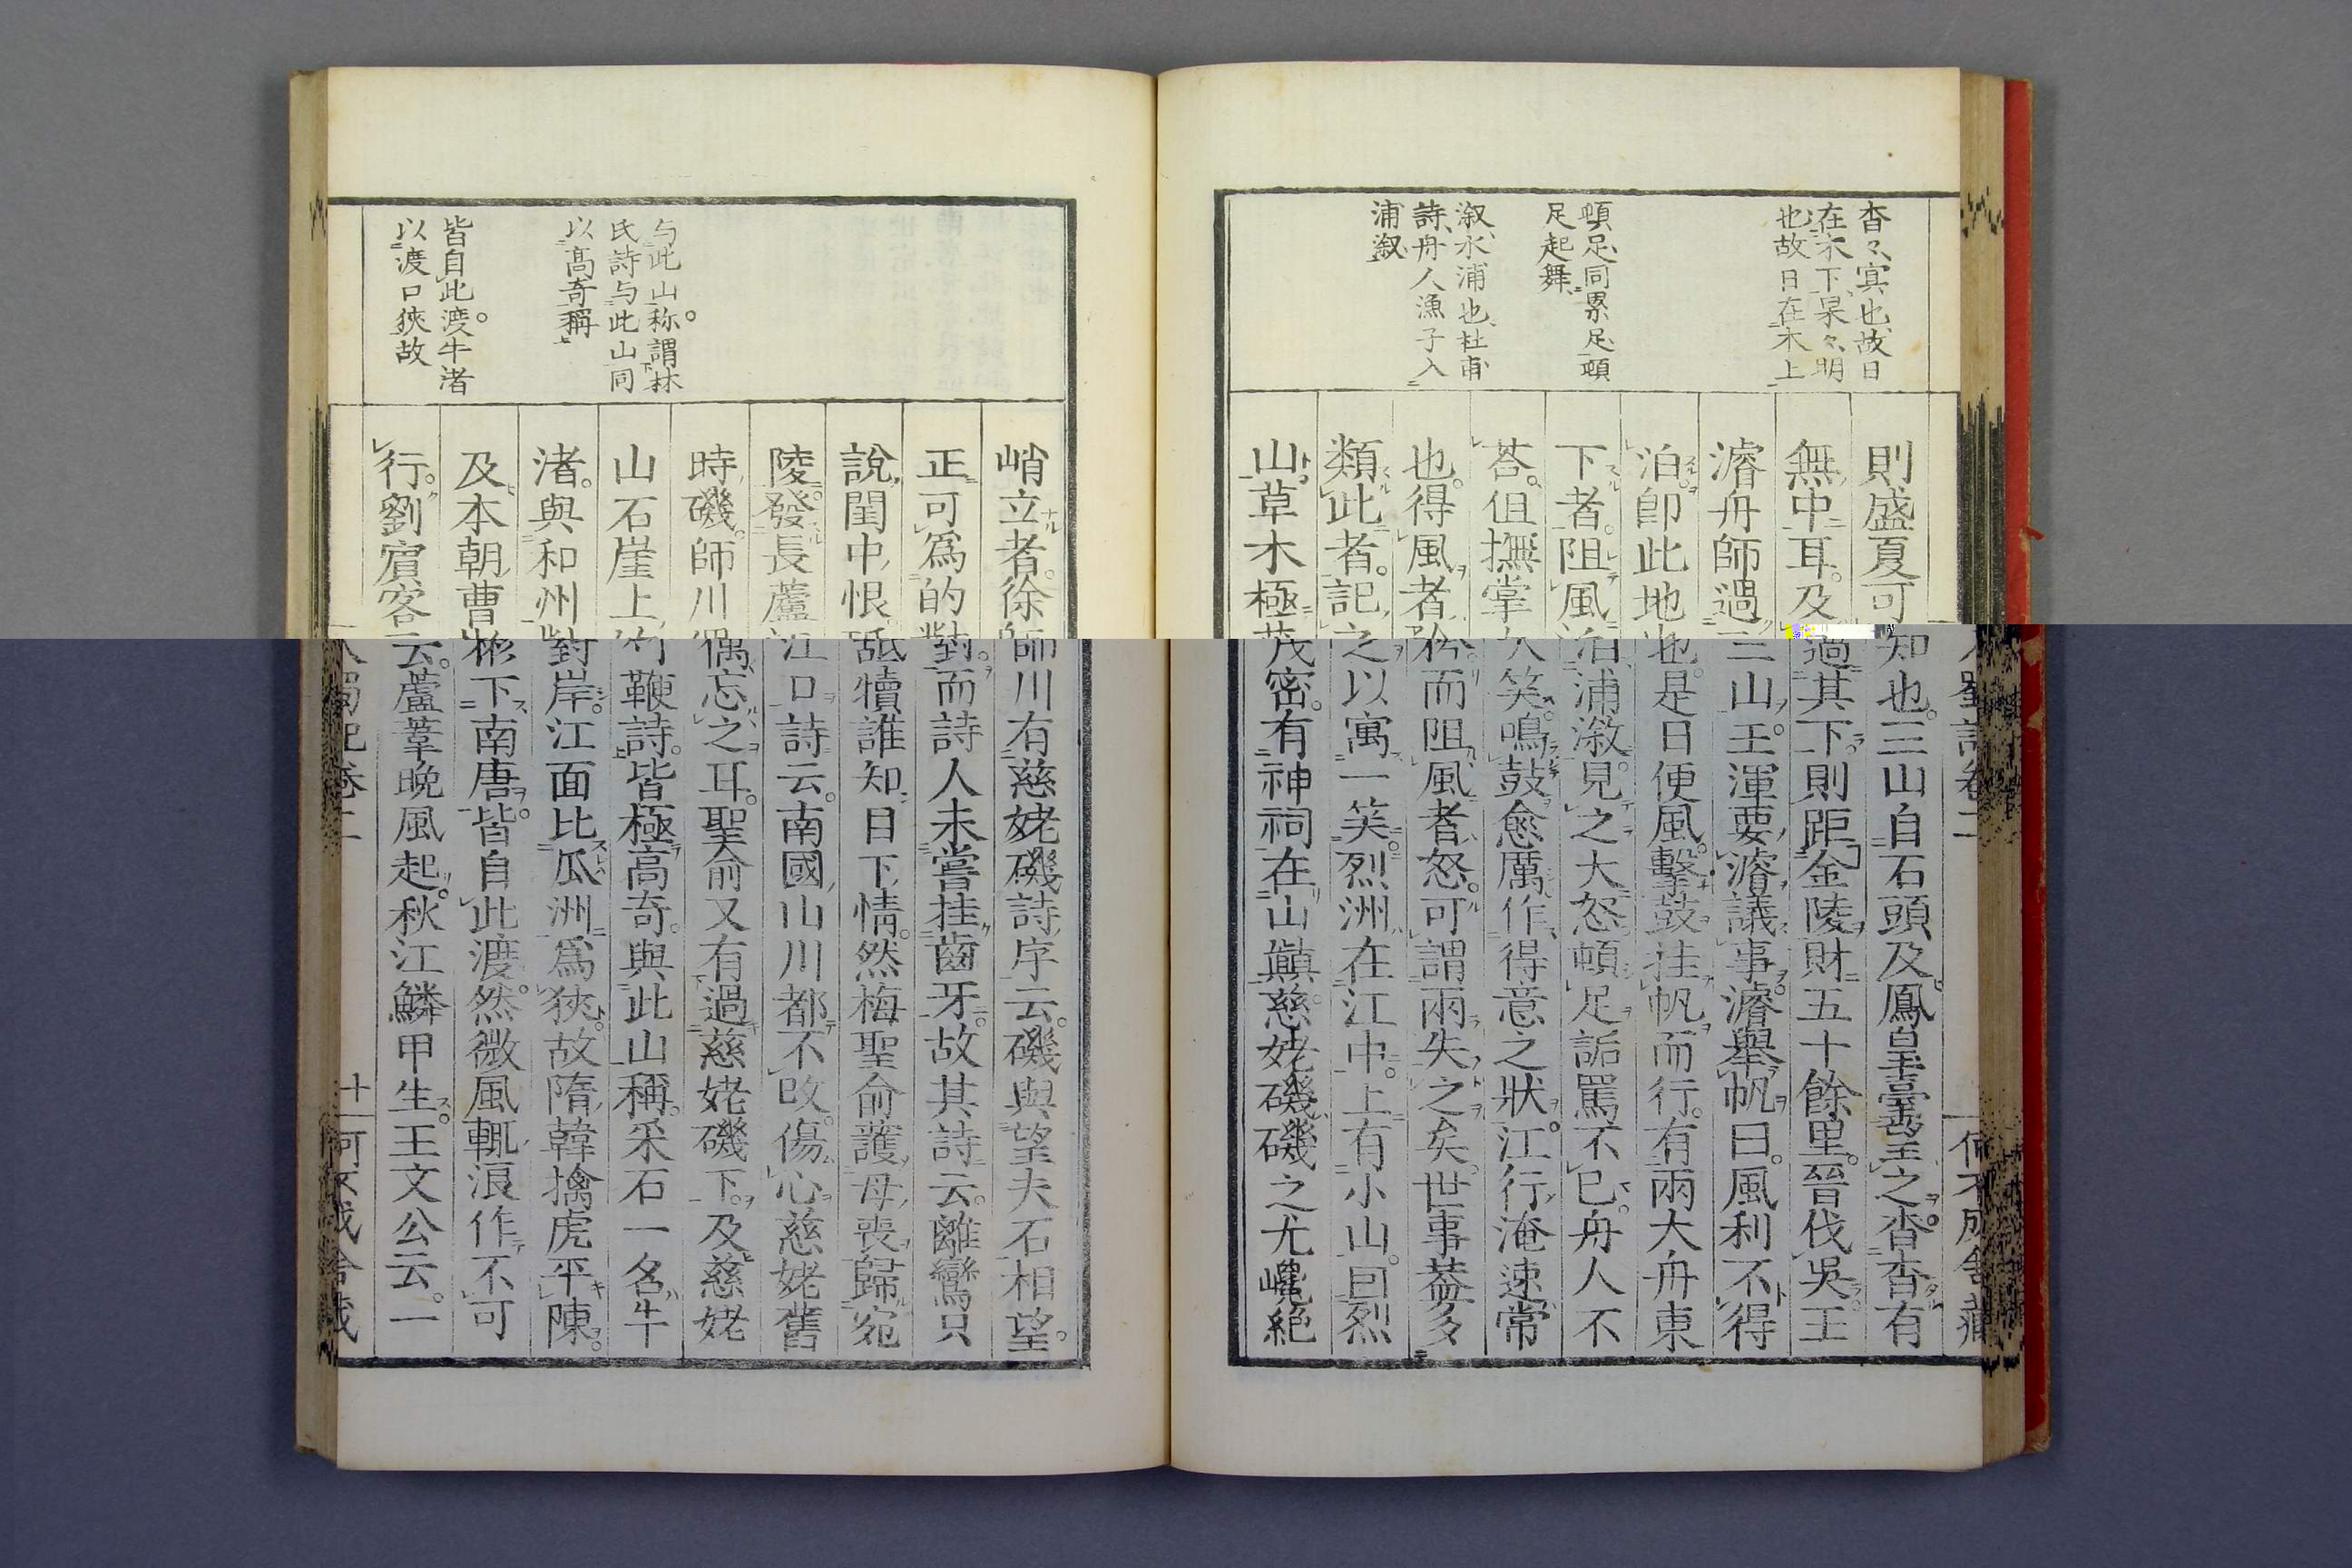 杳々冥也故日
在木下杲々明
也故日在木上
頓足同累足頓
足起舞
溆水浦也杜甫
詩舟人漁子入
浦溆
則盛夏可知也三山自石頭及鳳皇臺望之杳杳有
無中耳及過其下則距金陵財五十餘里晉伐吳王
濬舟師過三山王渾要濬議事濬舉帆曰風利不得
泊卽此地也是日便風擊鼓挂帆而行有兩大舟東
下者阻風泊浦溆見之大怒頓足詬罵不已舟人不
荅但撫掌大笑鳴鼓愈厲作得意之狀江行淹速常
也得風者矜而阻風者怒可謂兩失之矣世事葢多
類此者記之以寓一笑烈洲在江中上有小山曰烈
山草木極茂密有神祠在山巔慈姥磯磯之尤巉絶
与此山称謂林
氏詩与此山同
以髙奇稱
皆自此渡牛渚
以渡口狹故
峭立者徐師川有慈姥磯詩序云磯與望夫石相望
正可爲的對而詩人未嘗挂齒牙故其詩云離鸞只
說閨中恨舐犢誰知日下情然梅聖俞護母喪歸宛
陵發長蘆江口詩云南國山川都不改傷心慈姥舊
時磯師川偶忘之耳聖俞又有過慈姥磯下及慈姥
山石崖上竹鞭詩皆極高奇與此山稱采石一名牛
渚與和州對岸江面比瓜洲爲狹故隋韓擒虎平陳
及本朝曹彬下南唐皆自此渡然微風輒浪作不可
行劉賓客云蘆葦晚風起秋江鱗甲生王文公云一
入蜀記卷二
十一